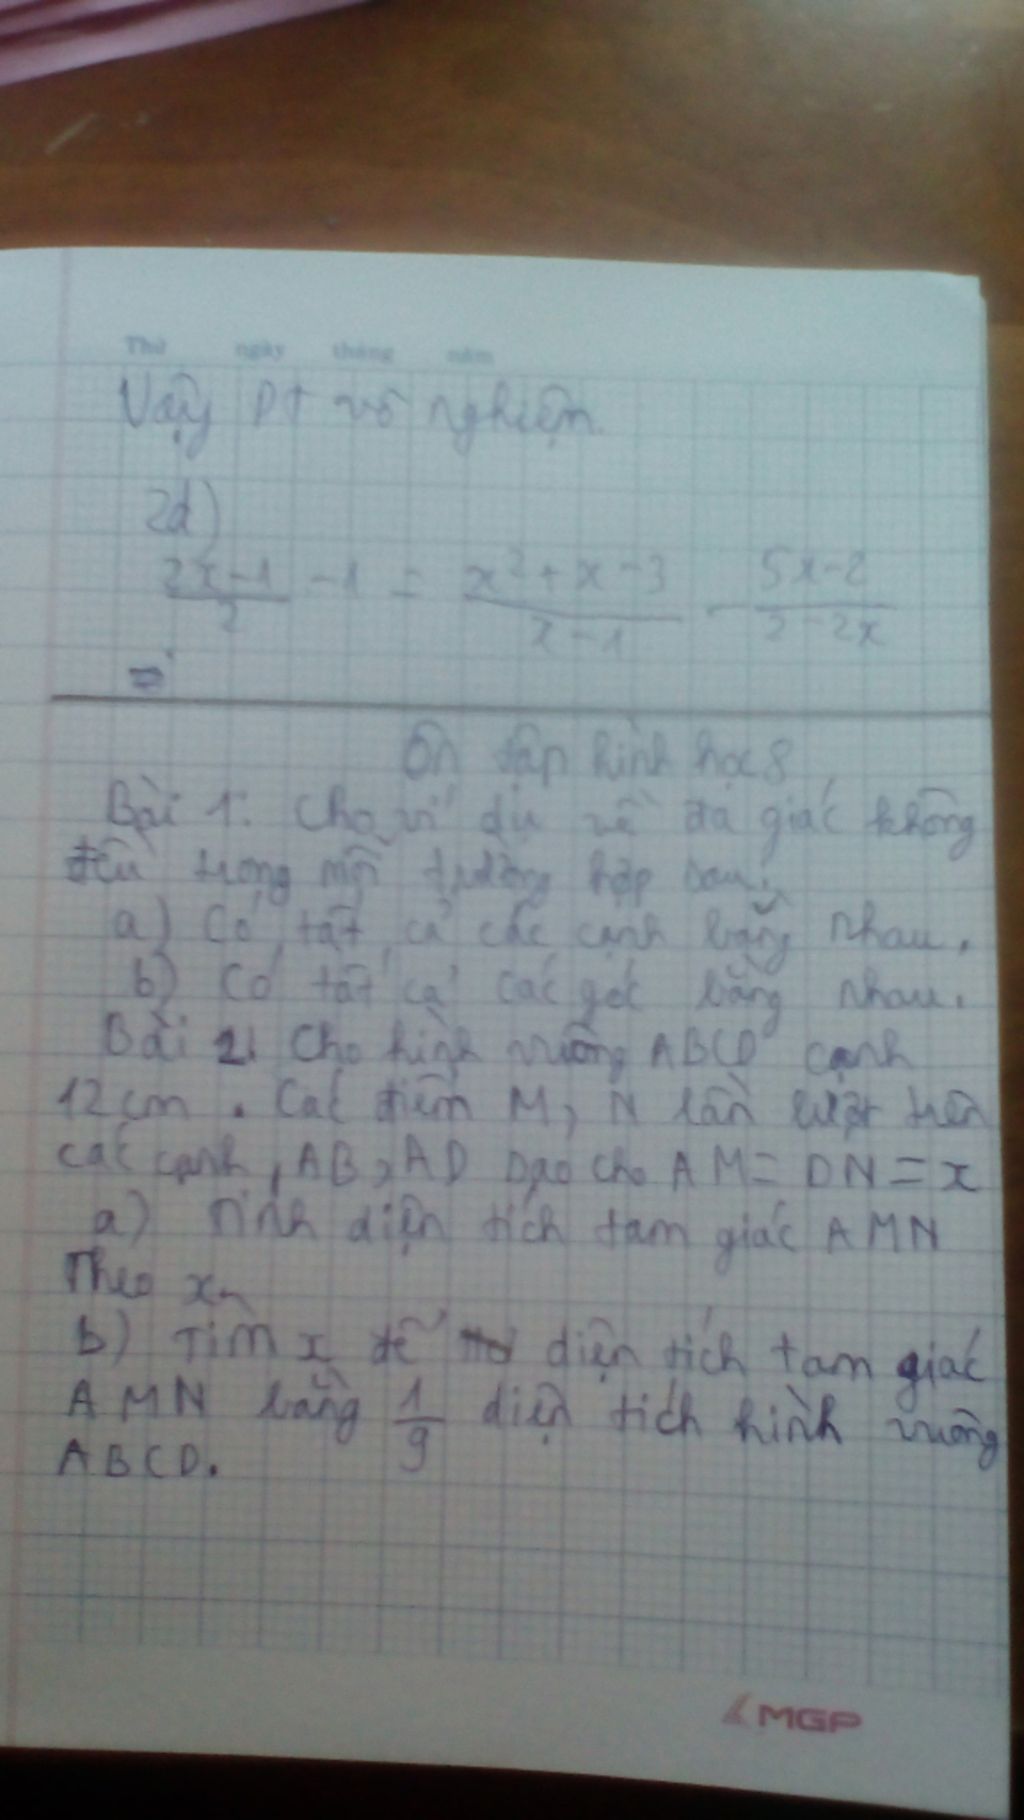 Thứ ngày tháng năm
Vậy PT vô nghiệm.
2d)
2x-1/2 -1 = x²+x-3/x-1 - 5x-2/2-2x
=
Ôn tập hình học 8
Bài 1: Cho ví dụ về đa giác không
đều trong mỗi trường hợp sau:
a) Có tất cả các cạnh bằng nhau.
b) Có tất cả các góc bằng nhau.
Bài 2: Cho hình vuông ABCD cạnh
12cm. Các điểm M, N lần lượt trên
các cạnh, AB, AD sao cho AM = DN = x
a) Tính diện tích tam giác AMN
Theo x.
b) Tìm x để diện tích tam giác
AMN bằng 1/9 diện tích hình vuông
ABCD.
MGP